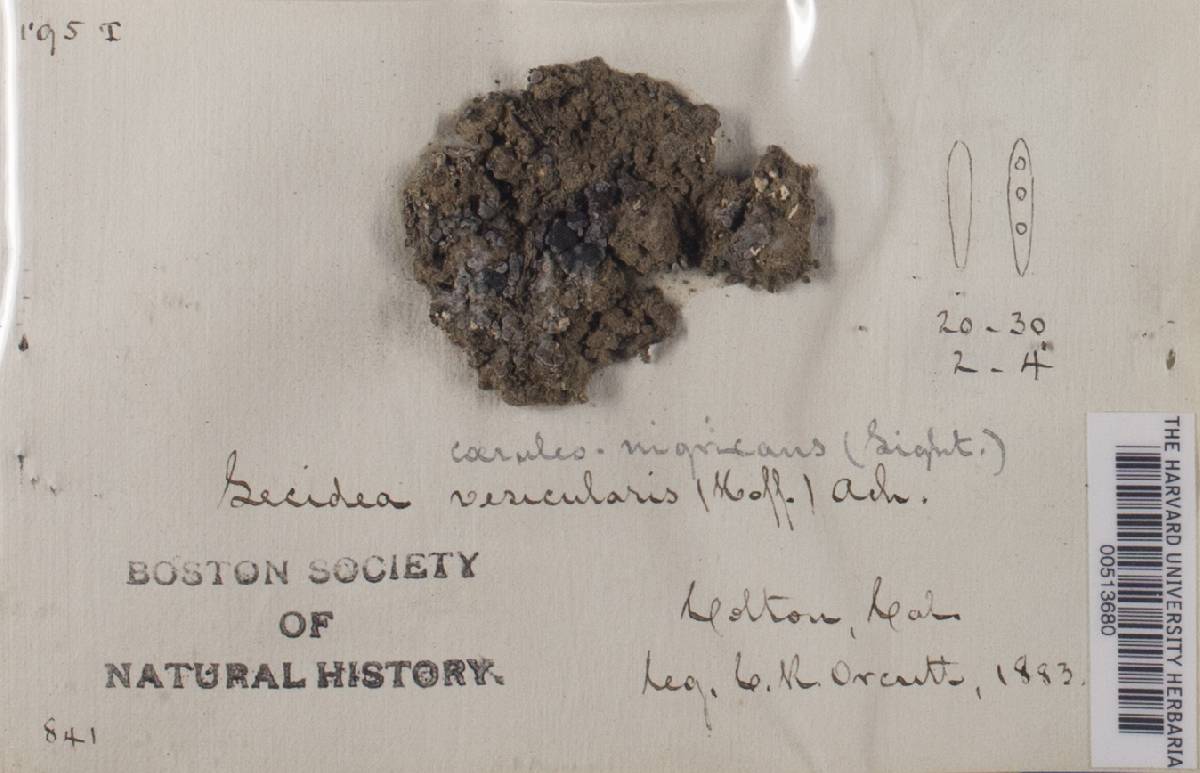 195 I
20 - 30
2 - 4
cæruleo-nigricans (Light.)
Lecidea vesicularis (Hoff.) Ach.
BOSTON SOCIETY
OF
NATURAL HISTORY.
Colton, Cal.
Leg. C. R. Orcutt, 1883.
841
THE HARVARD UNIVERSITY HERBARIA
00513680